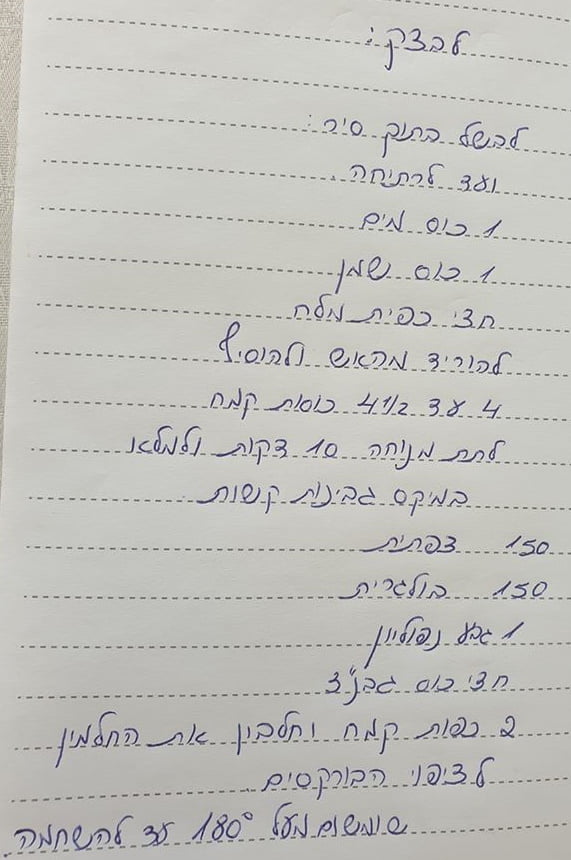 לבצק:
לבשל בתוך סיר:
ועד לרתיחה
1 כוס מים
1 כוס שמן
חצי כפית מלח
להוריד מהאש ולהוסיף
4 עד 4 1/2 כוסות קמח
לתת מניחה 10 דקות ולמלאו
במיקס גבינות קשות
150 צפתית
150 בולגרית
1 גבע נפוליון
חצי כוס גבנ"צ
2 כפות קמח וחלבון את החלמון
לציפוי הבורקסים
שומשום מעל 180° עד להשחמה